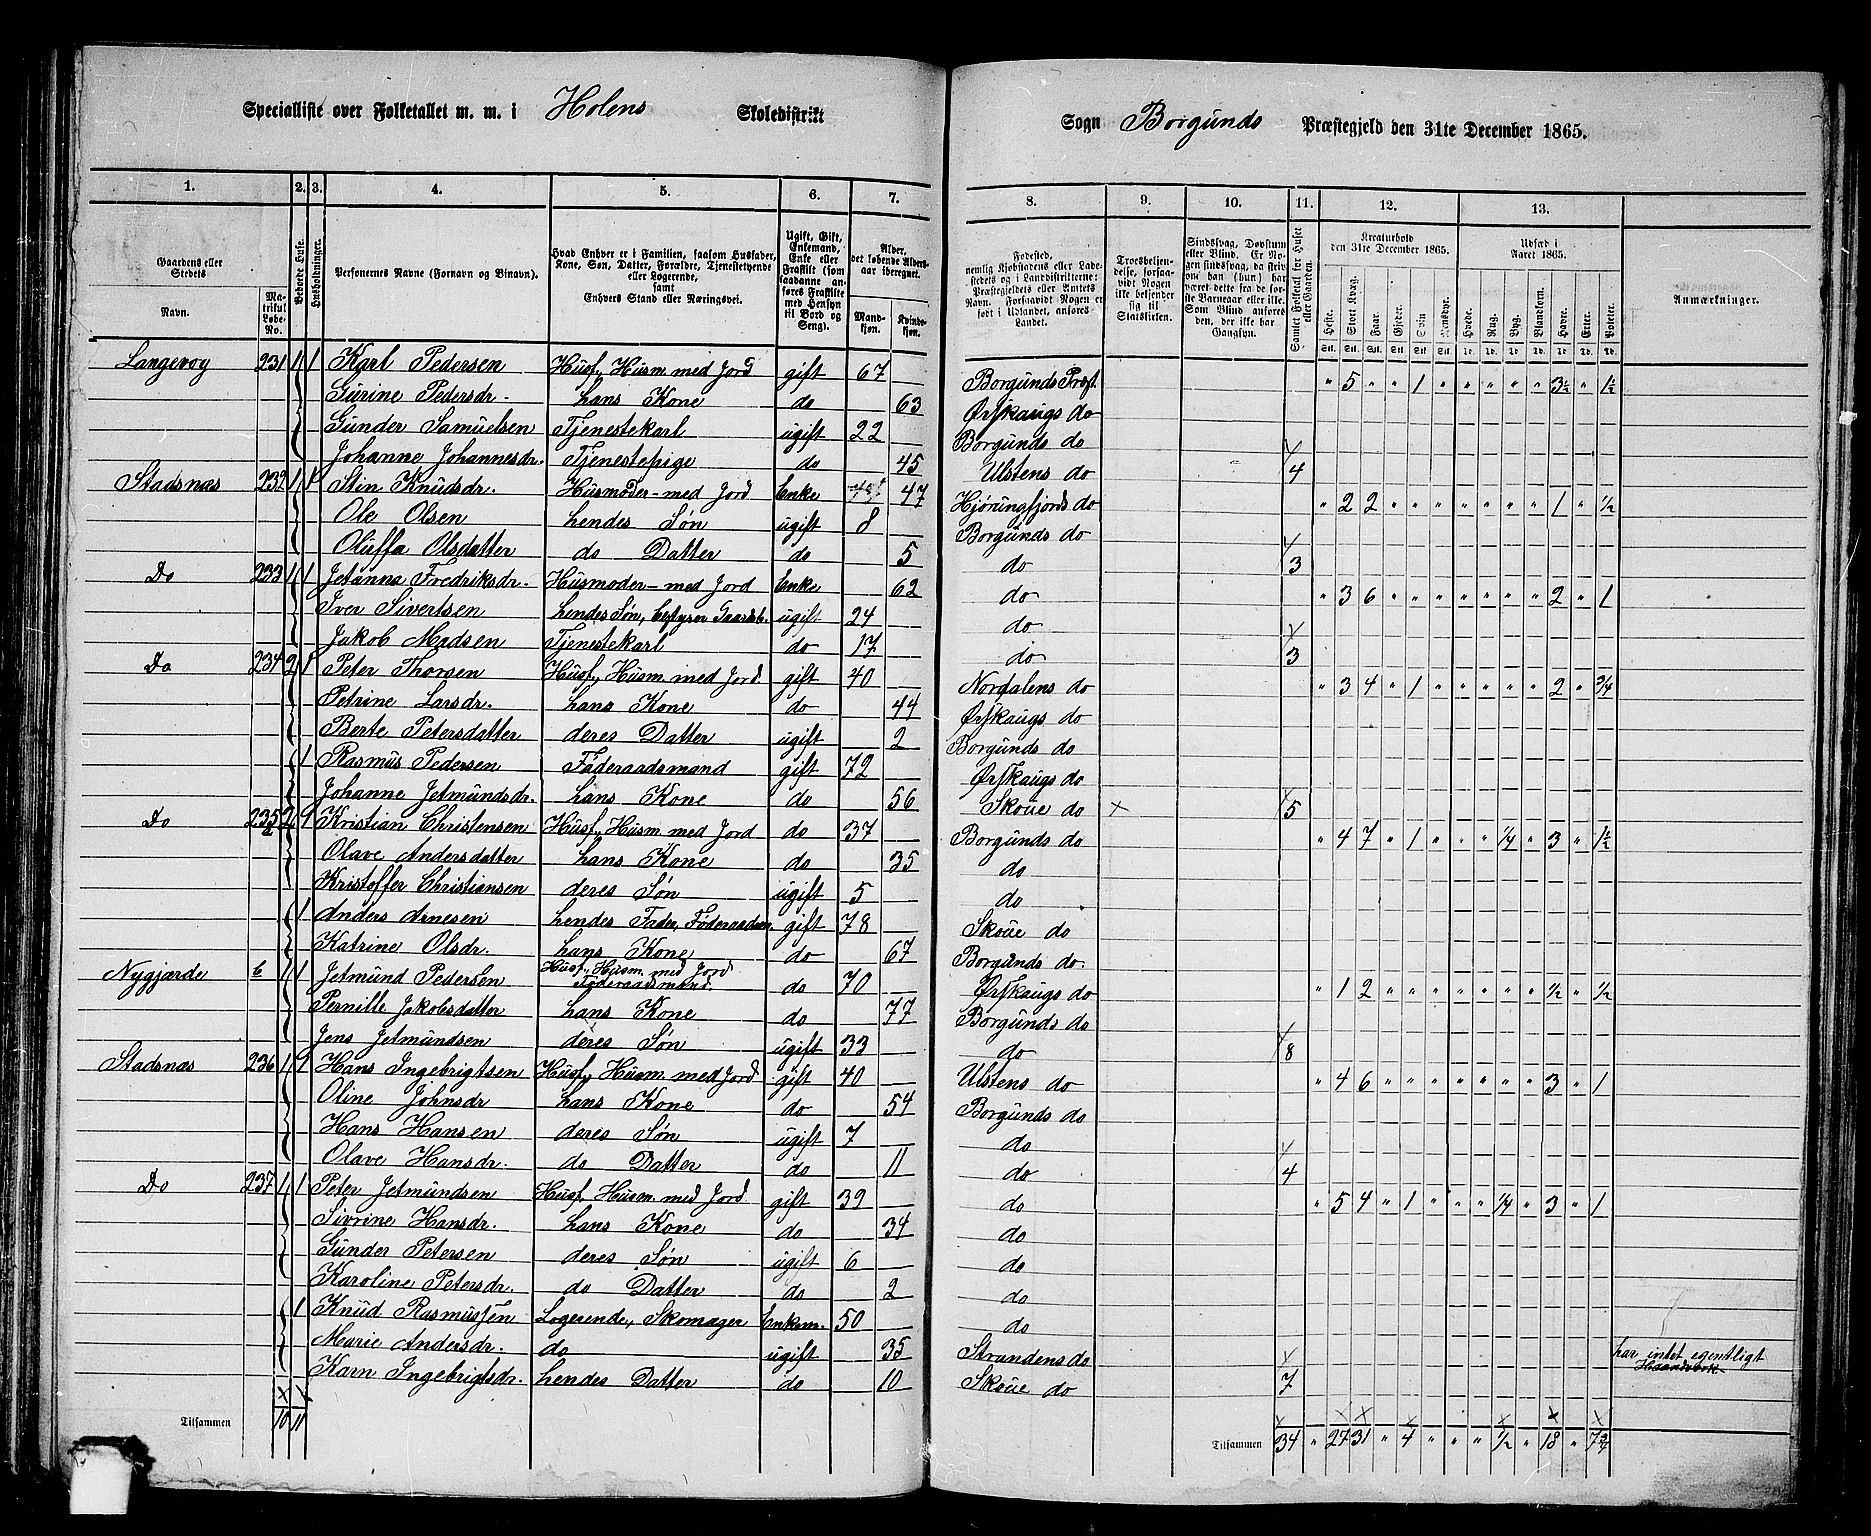 Specialliste over Folketallet m. m. i Holens Skoledistrikt
Sogn Borgunds Præstegjeld den 31te December 1865.
1. 2. 3. 4. 5. 6. 7. 8. 9. 10. 11. 12. 13.
Gaardens eller Stedets
Navn. Matrikul Løbe-No.
Beboede Huse.
Husholdninger.
Personernes Navne (Fornavn og Binavn).
Hvad Enhver er i Familien, saasom Husfader, Kone, Søn, Datter, Forældre, Tjenestetyende eller Logerende, samt Enhvers Stand eller Næringsvei.
Ugift, Gift, Enkemand, Enke eller Fraskilt (som saadanne anføres Fraskilte med Hensyn til Bord og Seng).
Alder, det løbende Aldersaar iberegnet.
Mandkjøn. Kvindekjøn.
Fødested, nemlig Kjøbstadens eller Ladestedets og i Landdistrikterne: Præstegjeldets eller Amtets Navn. (Forsaavidt Nogen er født i Udlandet, anføres Landet.
Troesbekjendelse, forsaavidt Nogen ikke bekjender sig til Statskirken.
Sindssvag, Døvstum eller Blind. Er Nogen sindssvag, da skrives han (hun) har været dette fra de første Barneaar eller ikke. Som Blind anføres den, der ikke har Gangsyn.
Samlet Folketal for Huset eller Gaarden.
Kreaturhold den 31te December 1865.
Heste. Stort Kvæg. Faar. Gjeder. Svin. Rensdyr.
Udsæd i Aaret 1865.
Hvede. Rug. Byg. Blandkorn. Havre. Erter. Poteter.
Anmærkninger.
Langevog 231 1 1 Karl Pedersen Husf., Husm. med Jord gift 67 Borgunds Præst. " 5 " " 1 " " " " " 3½ " 1½
Gurine Pedersdr. hans Kone do 63 Ørskaugs do
Gunder Samuelsen Tjenestekarl ugift 22 Borgunds do
Johanne Johannesdr. Tjenestepige do 45 Ulstens do 4
Stadsnæs 232 1 1 Stin Knudsdr. Husmoder med Jord Enke 47 Hjørungfjords do " 2 2 " " " " " " " 1 " ½
Ole Olsen hendes Søn ugift 8 Borgunds do
Oluffa Olsdatter do Datter do 5 do 3
Do 233 1 1 Jetanna Fredriksdr. Husmoder med Jord Enke 62 do " 3 6 " " " " " " " 2 " 1
Iver Sivertsen hendes Søn, bestyrer Gaardsb. ugift 24 do
Jakob Madsen Tjenestekarl do 17 do 3
Do 234 2 1 Peter Thorsen Husf., Husm. med Jord gift 40 Nordalens do " 3 4 " 1 " " " " " 2 " ¾
Petrine Larsdr. hans Kone do 44 Ørskaugs do
Berte Petersdatter deres Datter ugift 2 Borgunds do
1 Rasmus Pedersen Føderaadsmand gift 72 Ørskaugs do
Johanne Jetmundsdr. hans Kone do 56 Skoue do × 5
Do 235 a 2 1 Kristian Christensen Husf., Husm. med Jord do 37 Borgunds do " 4 7 " 1 " " " ¼ " 3 " 1½
Olave Andersdatter hans Kone do 35 do
Kristoffer Christiansen deres Søn ugift 5 do
1 Anders Arnesen hendes Fader, Føderaadsm. gift 78 Skoue do
Katrine Olsdr. hans Kone do 67 Borgunds do.
Nygjærde b 1 1 Jetmund Pedersen Husf., Husm. med Jord Føderaadsmand. do 70 Ørskaugs do " 1 2 " " " " " " " ½ " ½
Pernille Jakobsdatter hans Kone do 77 Borgunds do
Jens Jetmundsen deres Søn ugift 33 do 8
Stadsnæs 236 1 1 Hans Ingebrigtsen Husf., Husm. med Jord gift 40 Ulstens do " 4 6 " " " " " " " 3 " 1
Oline Johnsdr hans Kone do 54 Borgunds do
Hans Hansen deres Søn ugift 7 do
Olave Hansdr. do Datter do 11 do 4
Do 237 1 1 Peter Jetmundsen Husf., Husm. med Jord gift 39 do " 5 4 " 1 " " " ¼ " 3 " 1
Sivrine Hansdr. hans Kone do 34 do
Gunder Petersen deres Søn ugift 6 do
Karoline Petersdr. do Datter do 2 do
1 Knud Rasmussen Logerende, Skomager Enkem. 50 do
Marie Andersdr. do ugift 35 Strandens do har intet egentligt
Karn Ingebrigtsdr. hendes Datter do 10 Skoue do 7 Haandverk
Tilsammen 10 11
Tilsammen 34 " 27 31 " 4 " " " ½ " 18 " 7¾